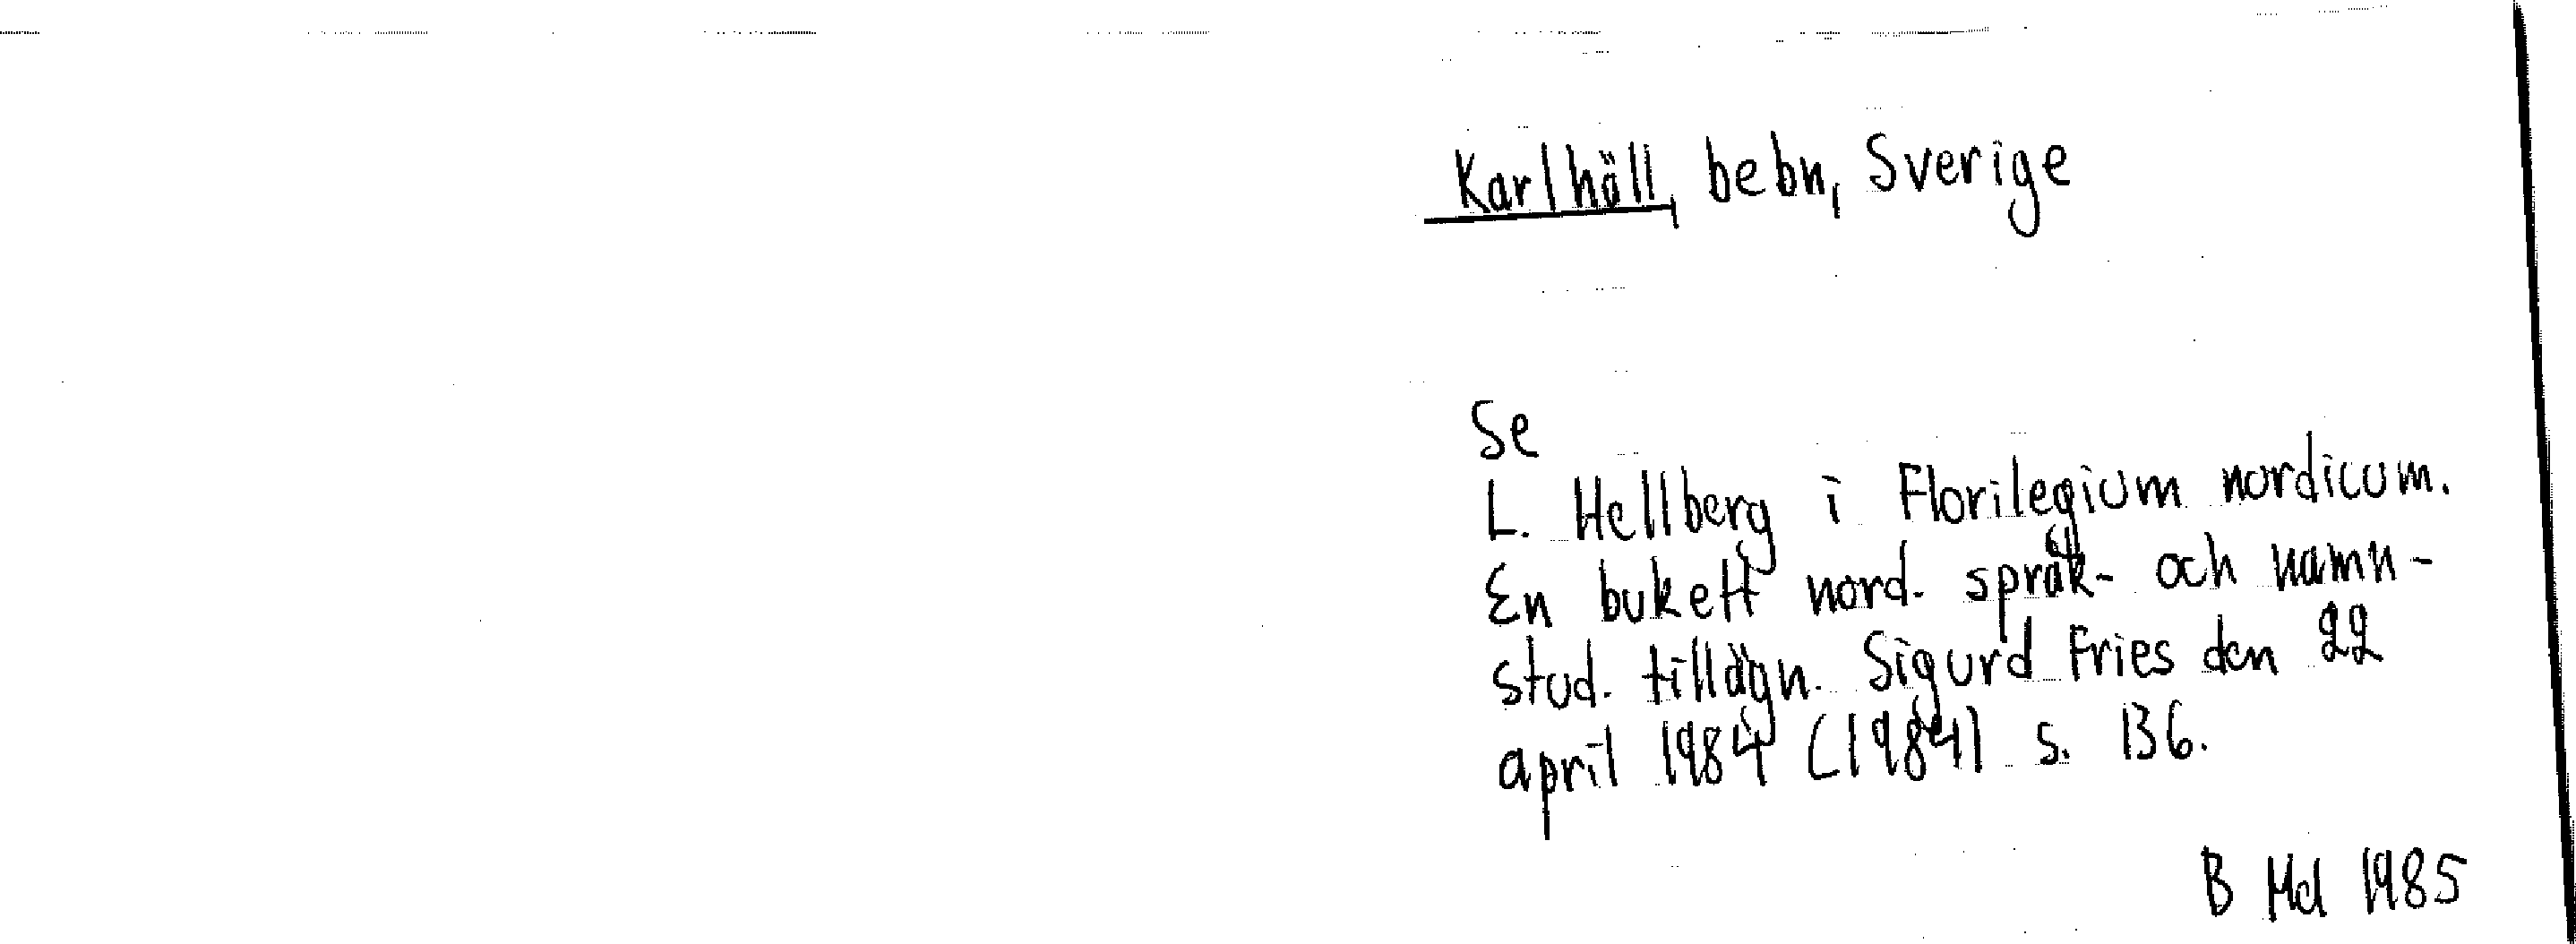 Karlhäll, bebn, Sverige
Se
L. Hellberg i Florilegium nordicum.
En bukett nord. språk- och namn-
stud. tillägn. Sigurd Fries den 22
april 1984 (1984) s. 136.
B Md 1985